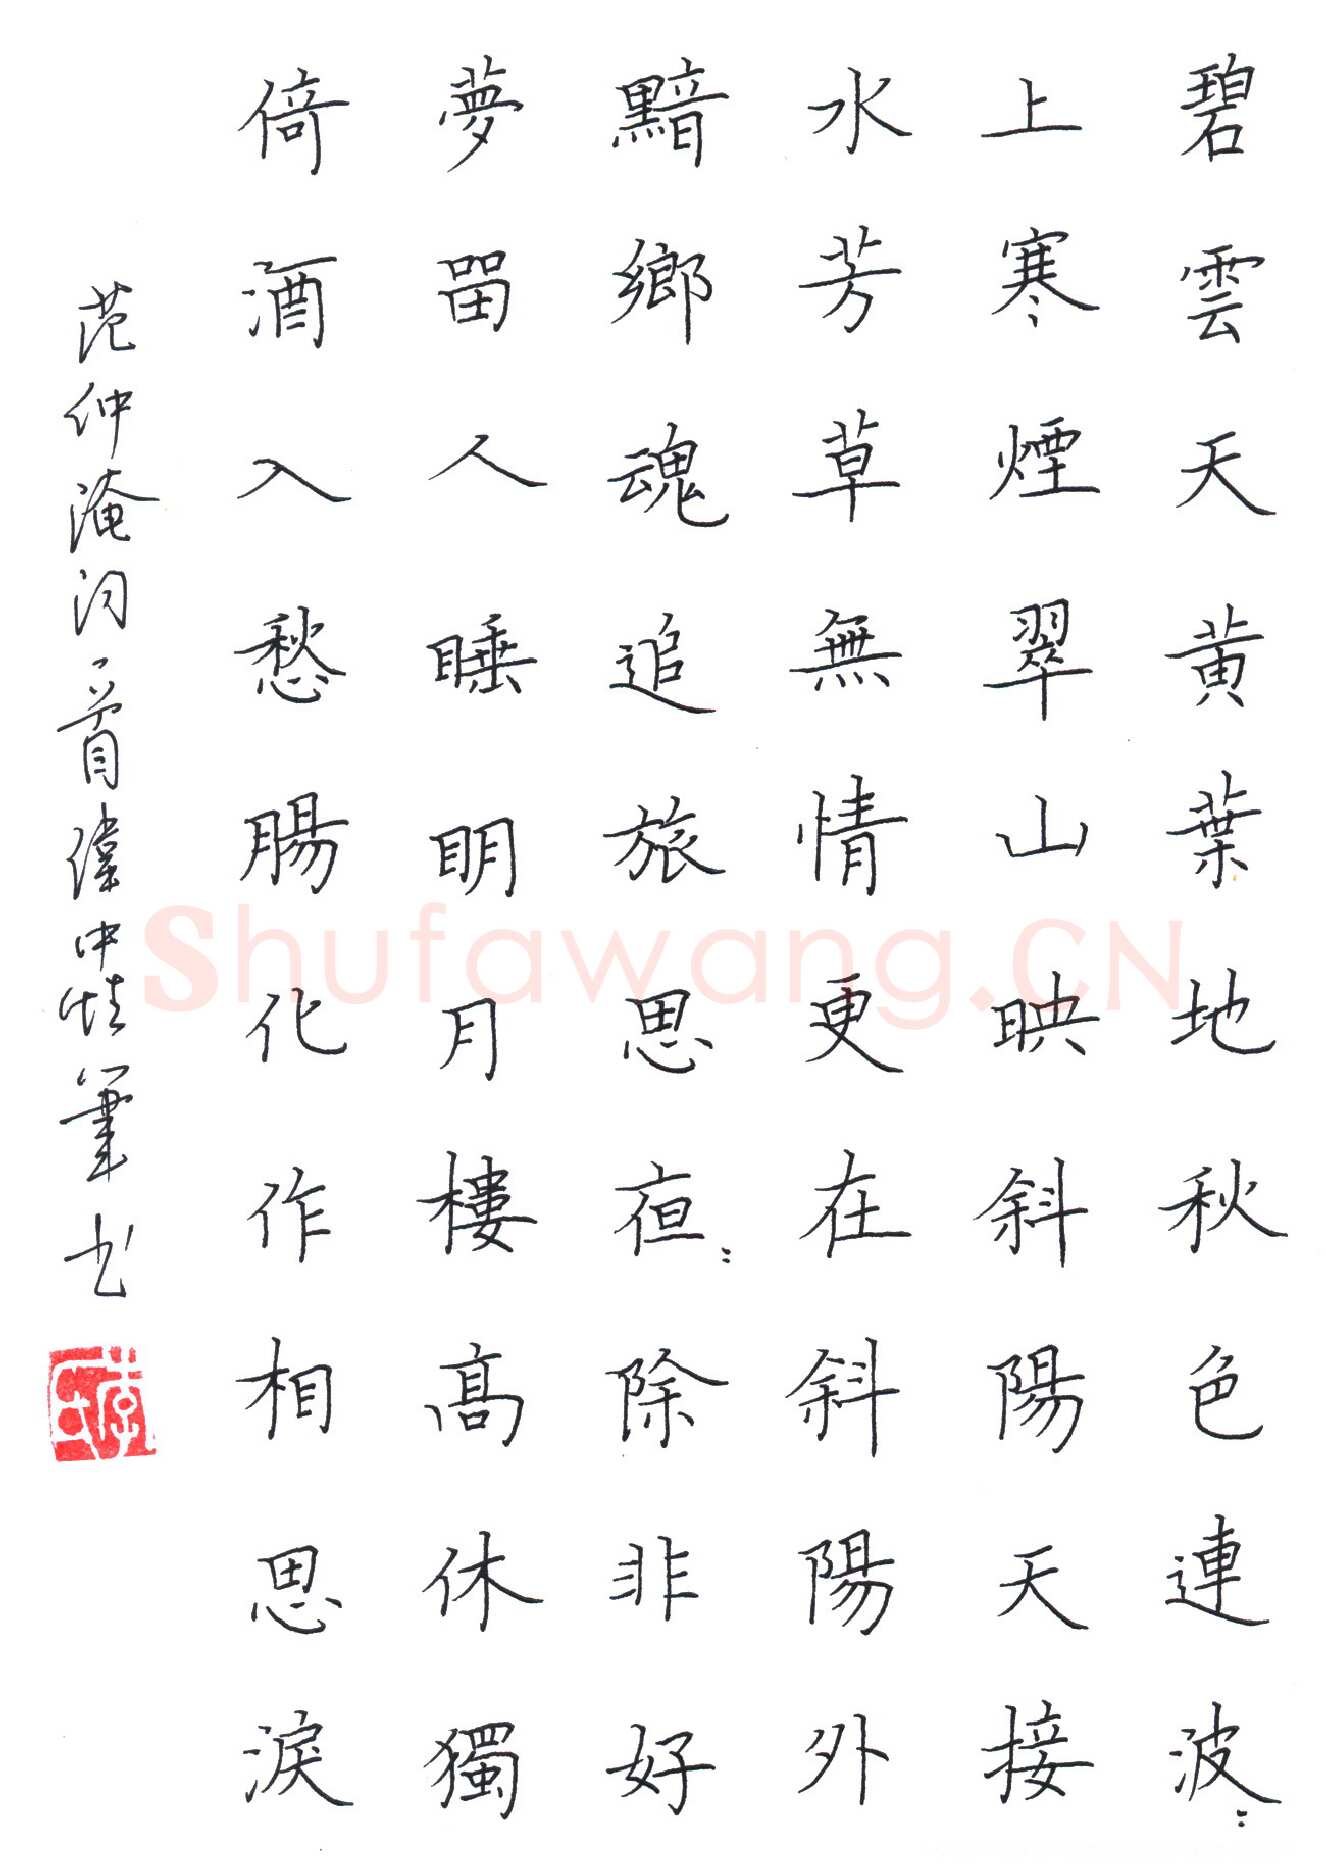 碧雲天黄葉地秋色連波〻
上寒煙翠山映斜陽天接
水芳草無情更在斜陽外
黯鄉魂追旅思夜〻除非好
夢留人睡明月樓高休獨
倚酒入愁腸化作相思淚
范仲淹词一首
笔书
Shufawang.CN